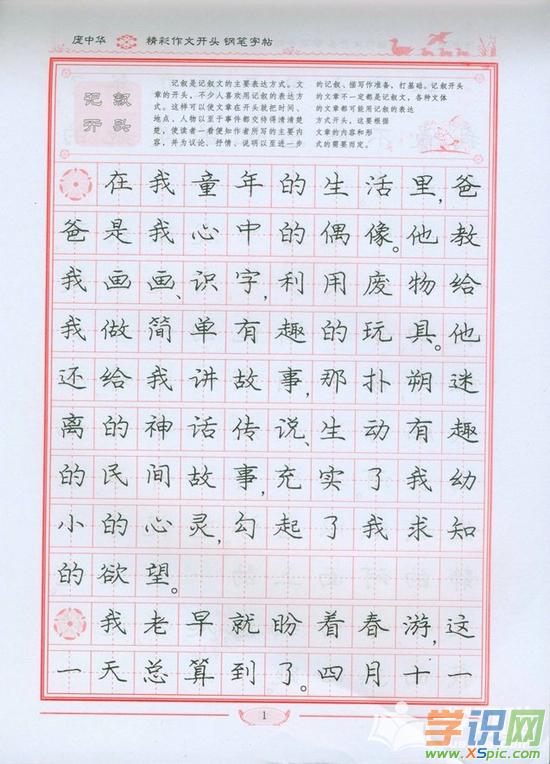 庞中华 精彩作文开头 钢笔字帖
记叙
开头
记叙是记叙文的主要表达方式。文
章的开头，不少人喜欢用记叙的表达方
式。这样可以使文章在开头就把时间、
地点、人物以至于事件都交待得清清楚
楚，使读者一看便知作者所写的主要内
容，并为议论、抒情、说明以至进一步
的记叙、描写作准备，打基础。记叙开头
的文章不一定都是记叙文，各种文体
的文章都可能用记叙的表达
方式开头，这要根据
文章的内容和形
式的需要而定。
在我童年的生活里，爸
爸是我心中的偶像。他教
我画画、识字，利用废物给
我做简单有趣的玩具。他
还给我讲故事，那扑朔迷
离的神话传说、生动有趣
的民间故事，充实了我幼
小的心灵，勾起了我求知
的欲望。
我老早就盼着春游，这
一天总算到了。四月十一
1
学识网
www.XSpic.com